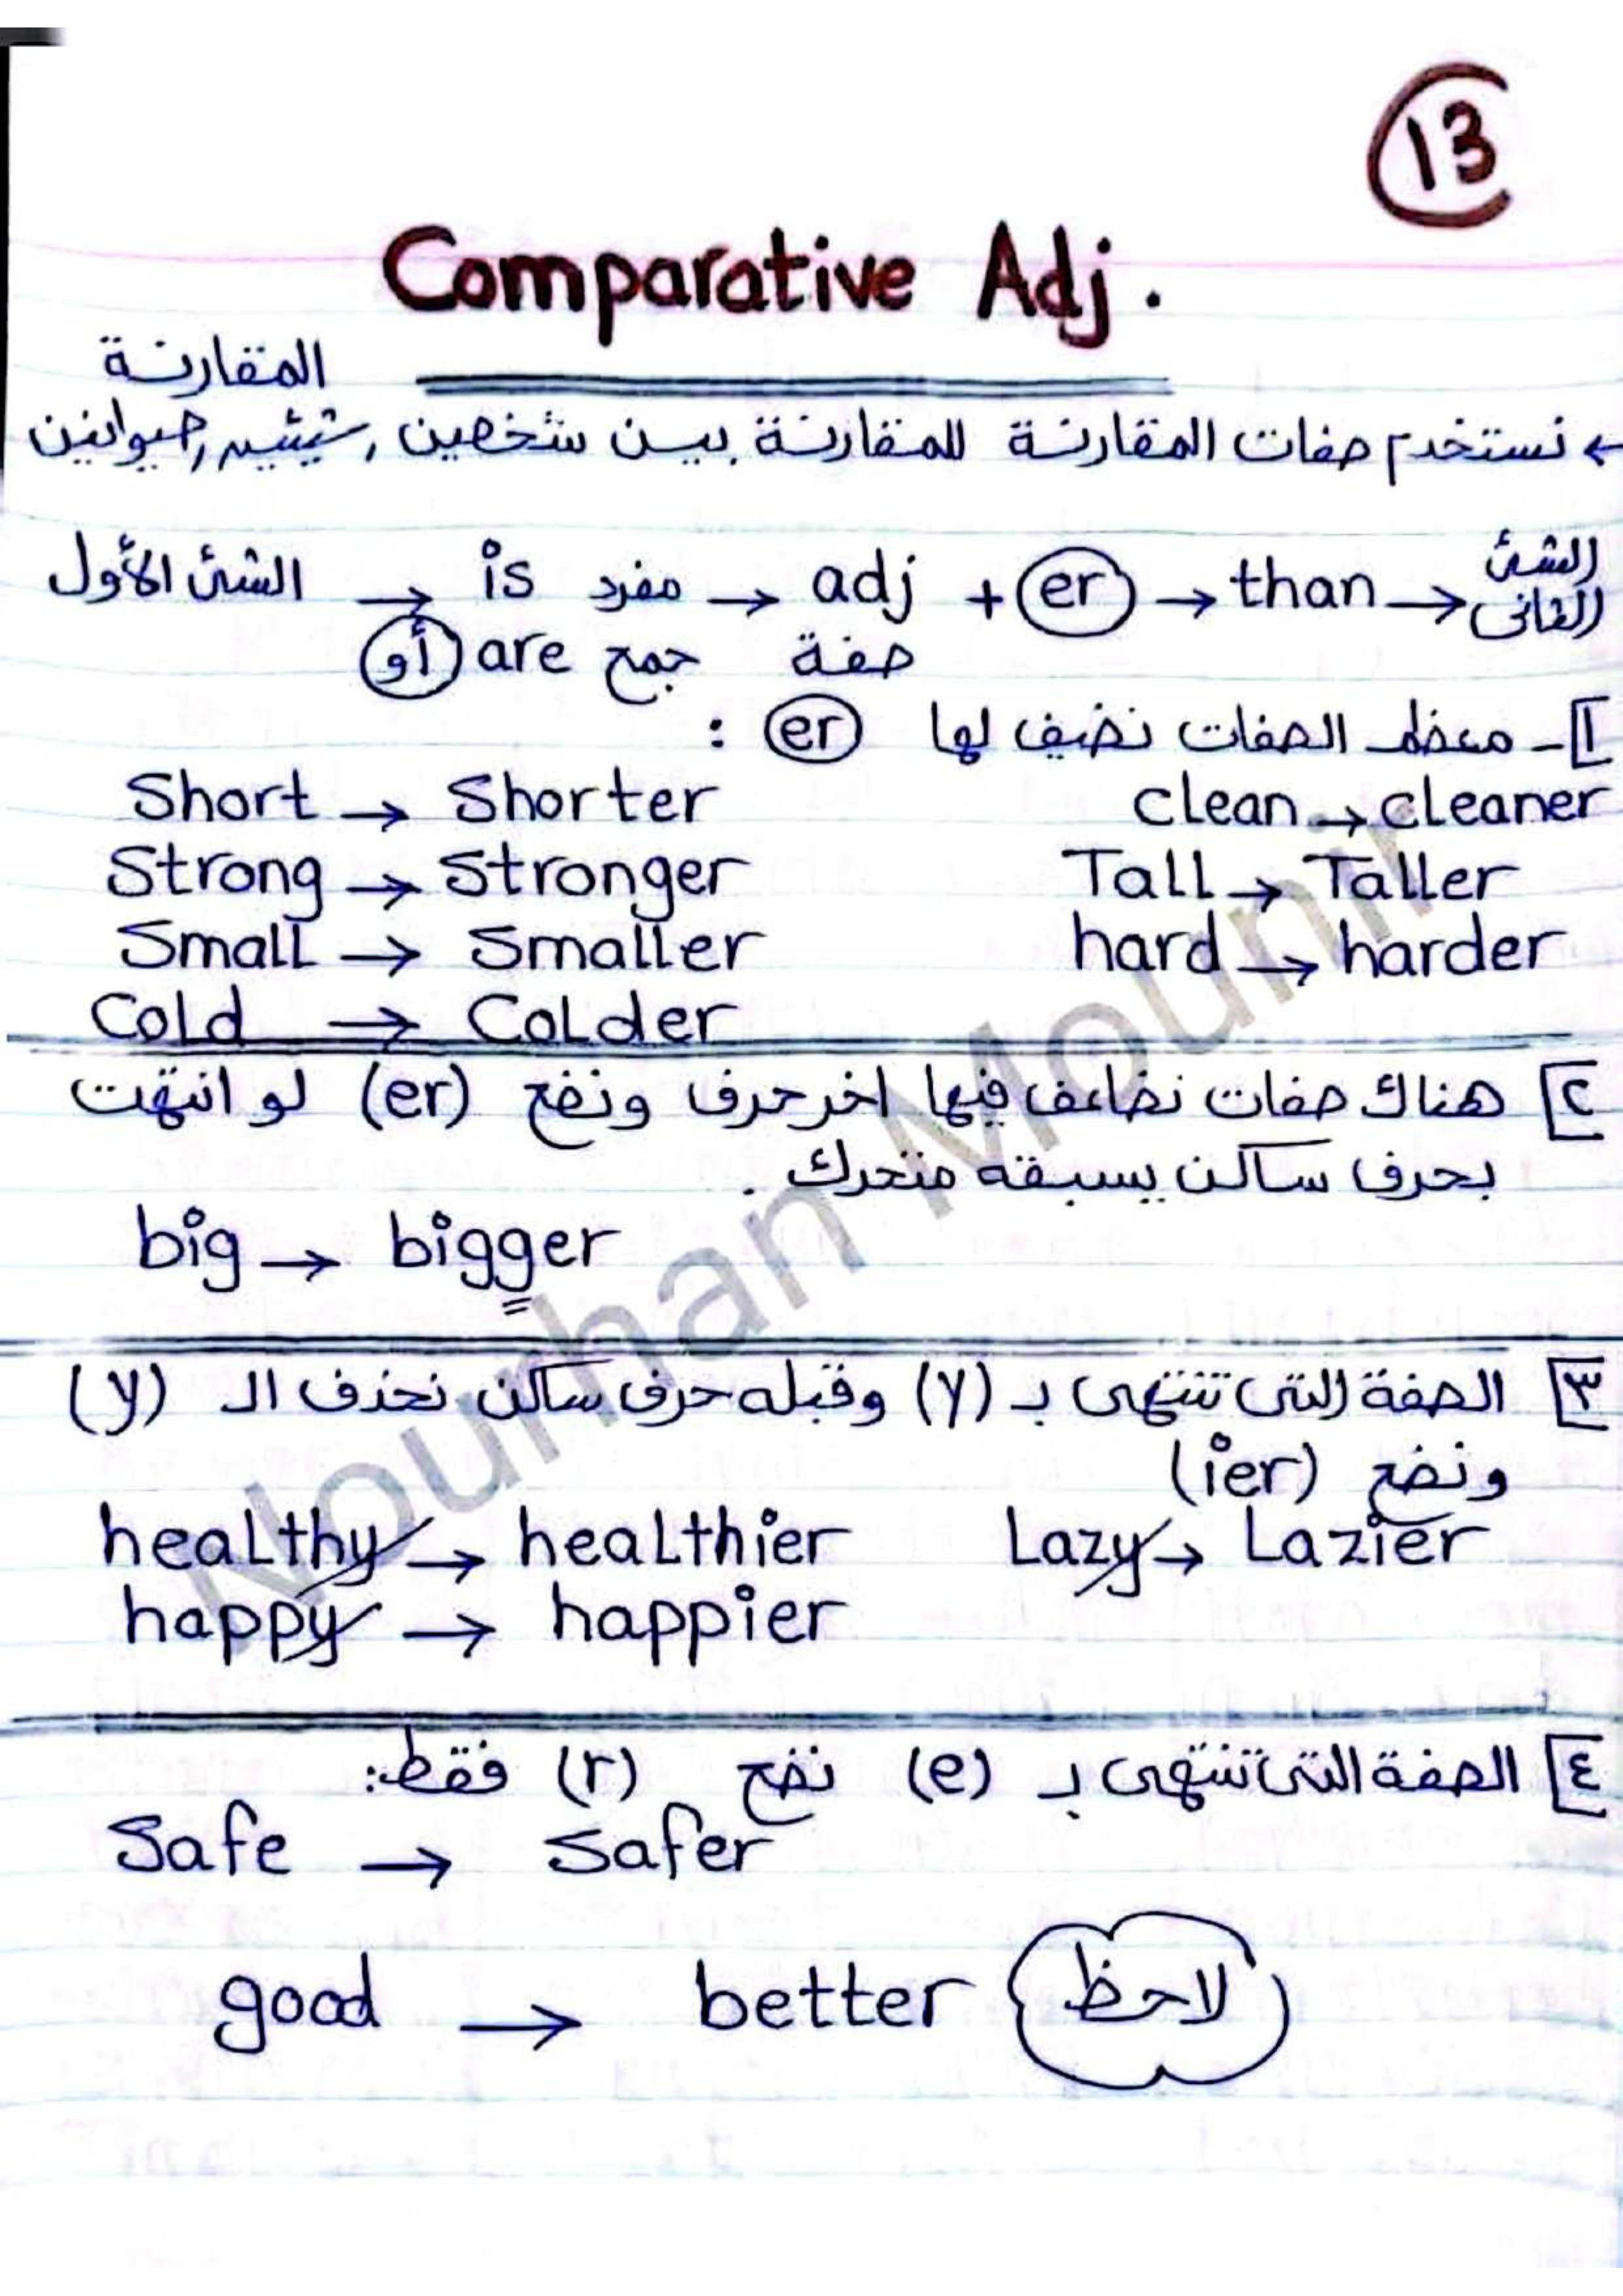 13
Comparative Adj.
المقارنة
← نستخدم صفات المقارنة للمقارنة بين شخصين, شيئين, حيوانين
الشئ الأول → is مفرد → adj + er → than → الشئ الثانى
أو are جمع صفة
1- معظم الصفات نضيف لها er :
Short → Shorter clean → cleaner
Strong → Stronger Tall → Taller
Small → Smaller hard → harder
Cold → Colder
٢ هناك صفات نضاعف فيها اخر حرف ونضع (er) لو انتهت
بحرف ساكن يسبقه متحرك .
big → bigger
٣ الصفة التى تنتهى بـ (y) وقبله حرف ساكن نحذف الـ (y)
ونضع (ier)
healthy → healthier Lazy → Lazier
happy → happier
٤ الصفة التى تنتهى بـ (e) نضع (r) فقط:
Safe → Safer
good → better لاحظ
Nourhan Mounir